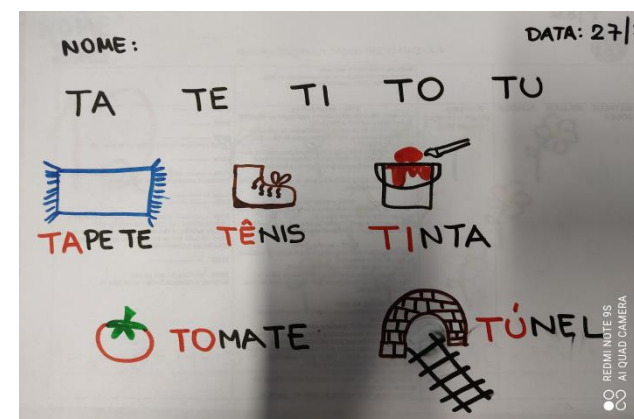 NOME:
DATA: 27/
TA TE TI TO TU
TAPETE TÊNIS TINTA
TOMATE TÚNEL
REDMI NOTE 9S
AI QUAD CAMERA